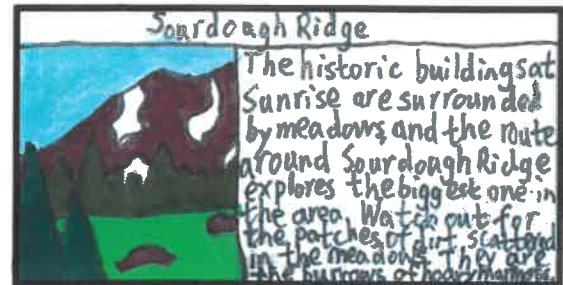 Sourdough Ridge
The historic buildings at
Sunrise are surrounded
by meadows, and the route
around Sourdough Ridge
explores the biggest one in
the area. Watch out for
the patches of dirt scattered
in the meadows. They are
the burrows of hoary marmots.